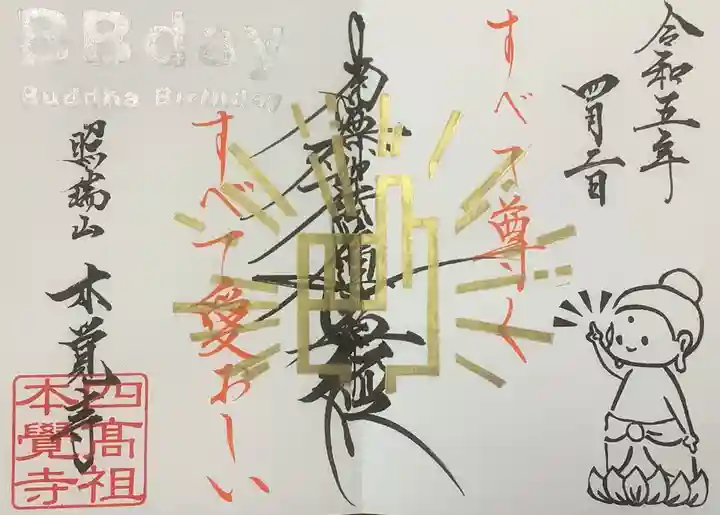 令和五年
四月二日
すべて尊く
南無妙法蓮華経
すべて愛おしい
BBday
Buddha Birthday
照瑞山
本覚寺
四高祖
本覺寺